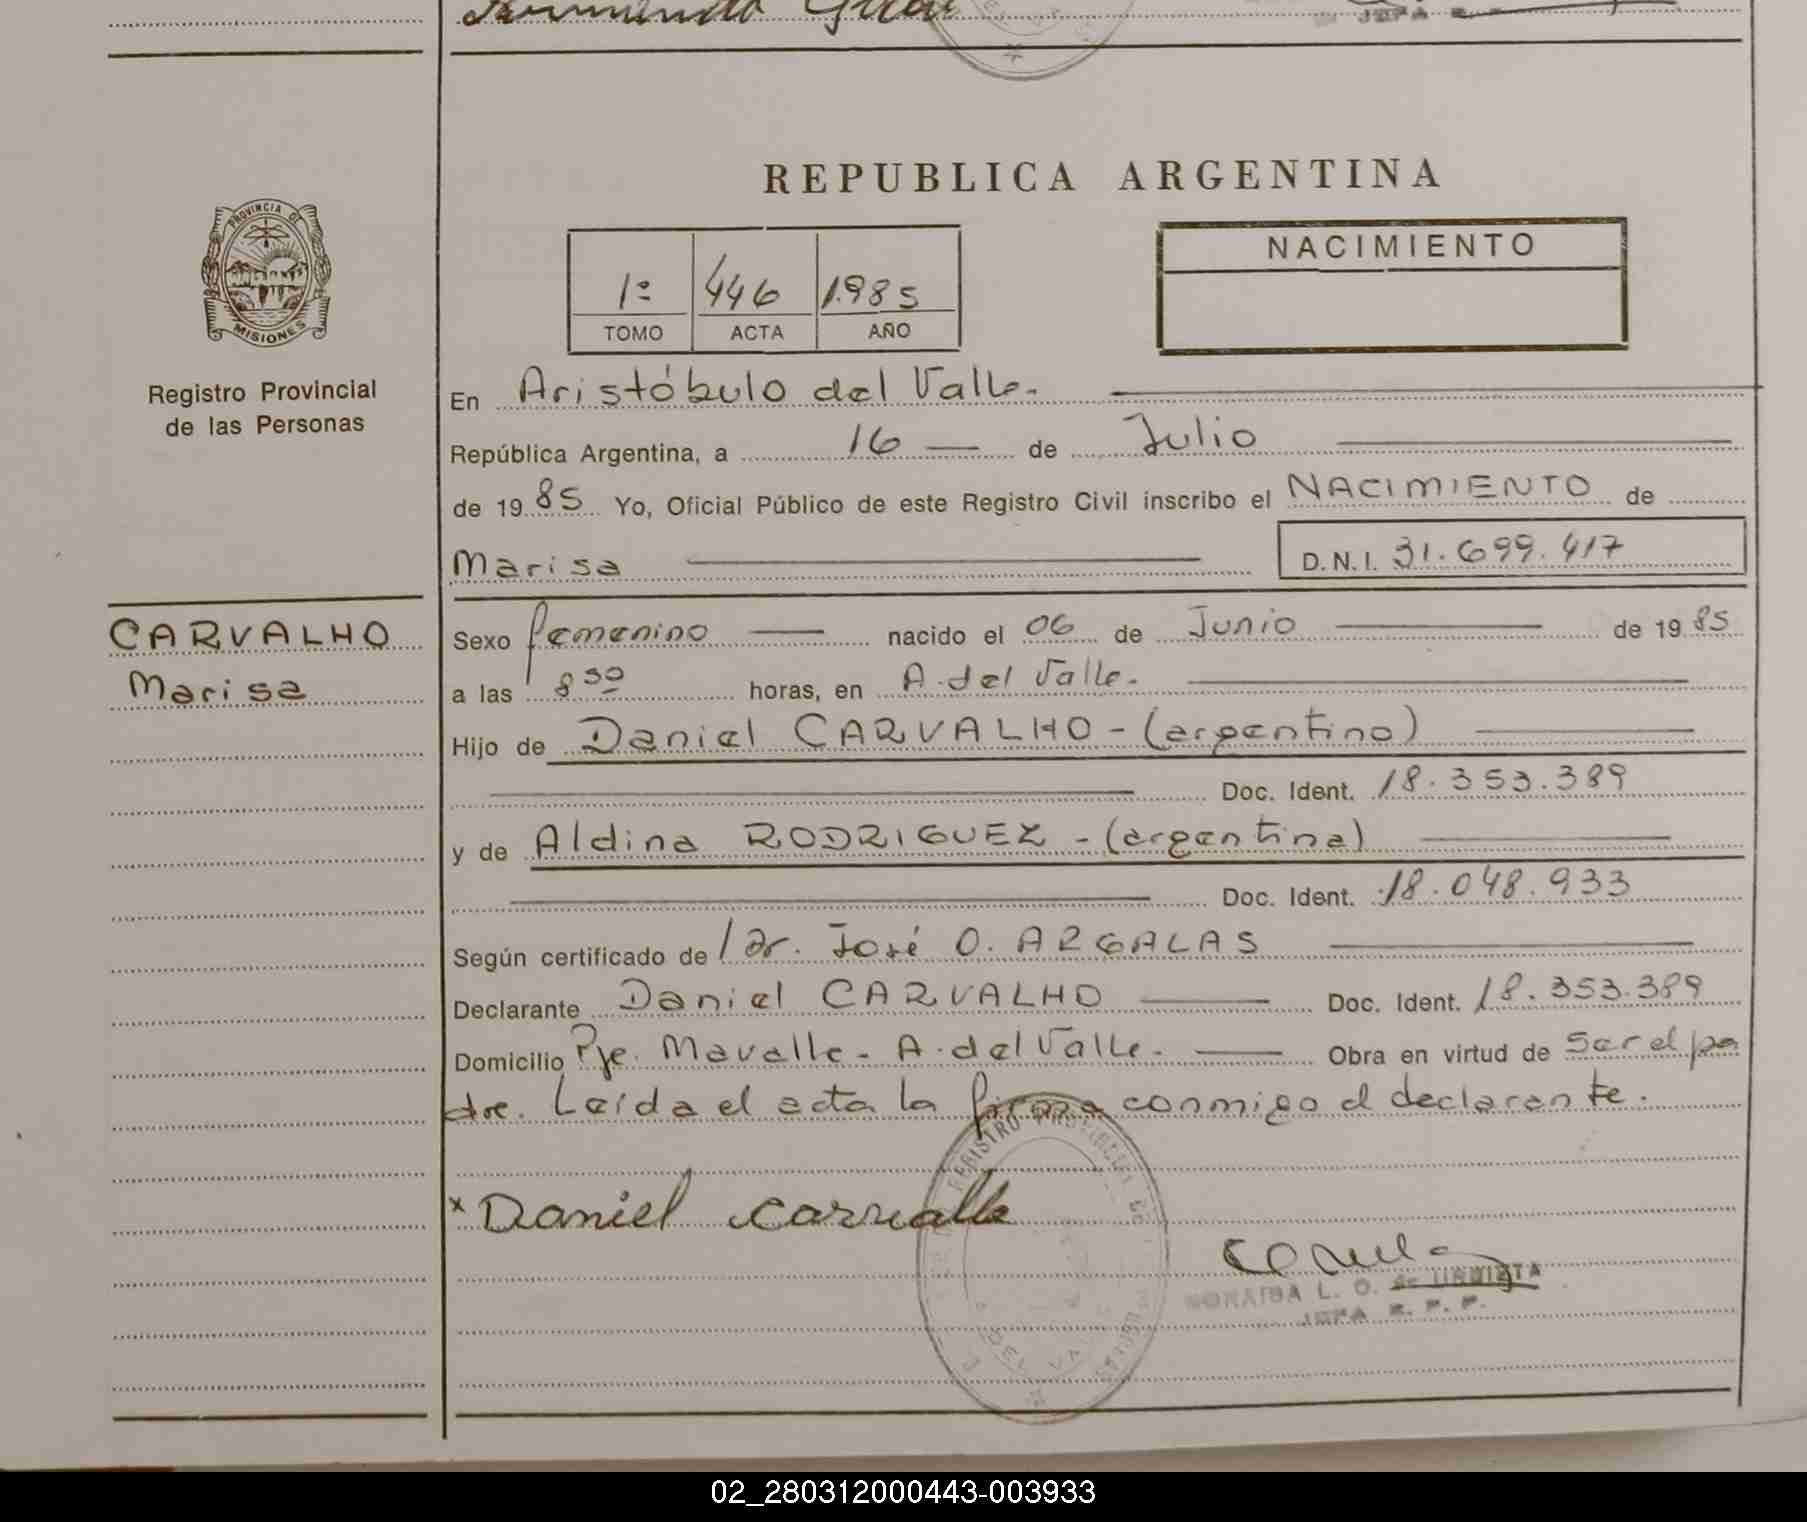 PROVINCIA DE
MISIONES
Registro Provincial
de las Personas
CARVALHO
Marisa
REPUBLICA ARGENTINA
1º 446 1.985
TOMO ACTA AÑO
NACIMIENTO
En Aristóbulo del Valle.
República Argentina, a 16 de Julio
de 19 85 Yo, Oficial Público de este Registro Civil inscribo el NACIMIENTO de
Marisa D.N.I. 31.699.417
Sexo femenino nacido el 06 de Junio de 19 85
a las 8 30 horas, en A. del Valle.
Hijo de Daniel CARVALHO - (argentino)
Doc. Ident. 18.353.389
y de Aldina RODRIGUEZ - (argentina)
Doc. Ident. 18.048.933
Según certificado de Dr. José O. ARGALAS
Declarante Daniel CARVALHO Doc. Ident. 18.353.389
Domicilio Pje. Mavalle - A. del Valle. Obra en virtud de Ser el pa
dre. Leída el acta la firma conmigo el declarante.
REGISTRO PROVINCIAL DE
x Daniel Carvalho
L. O. de URRIETA
JEFA R. P. P.
02_280312000443-003933